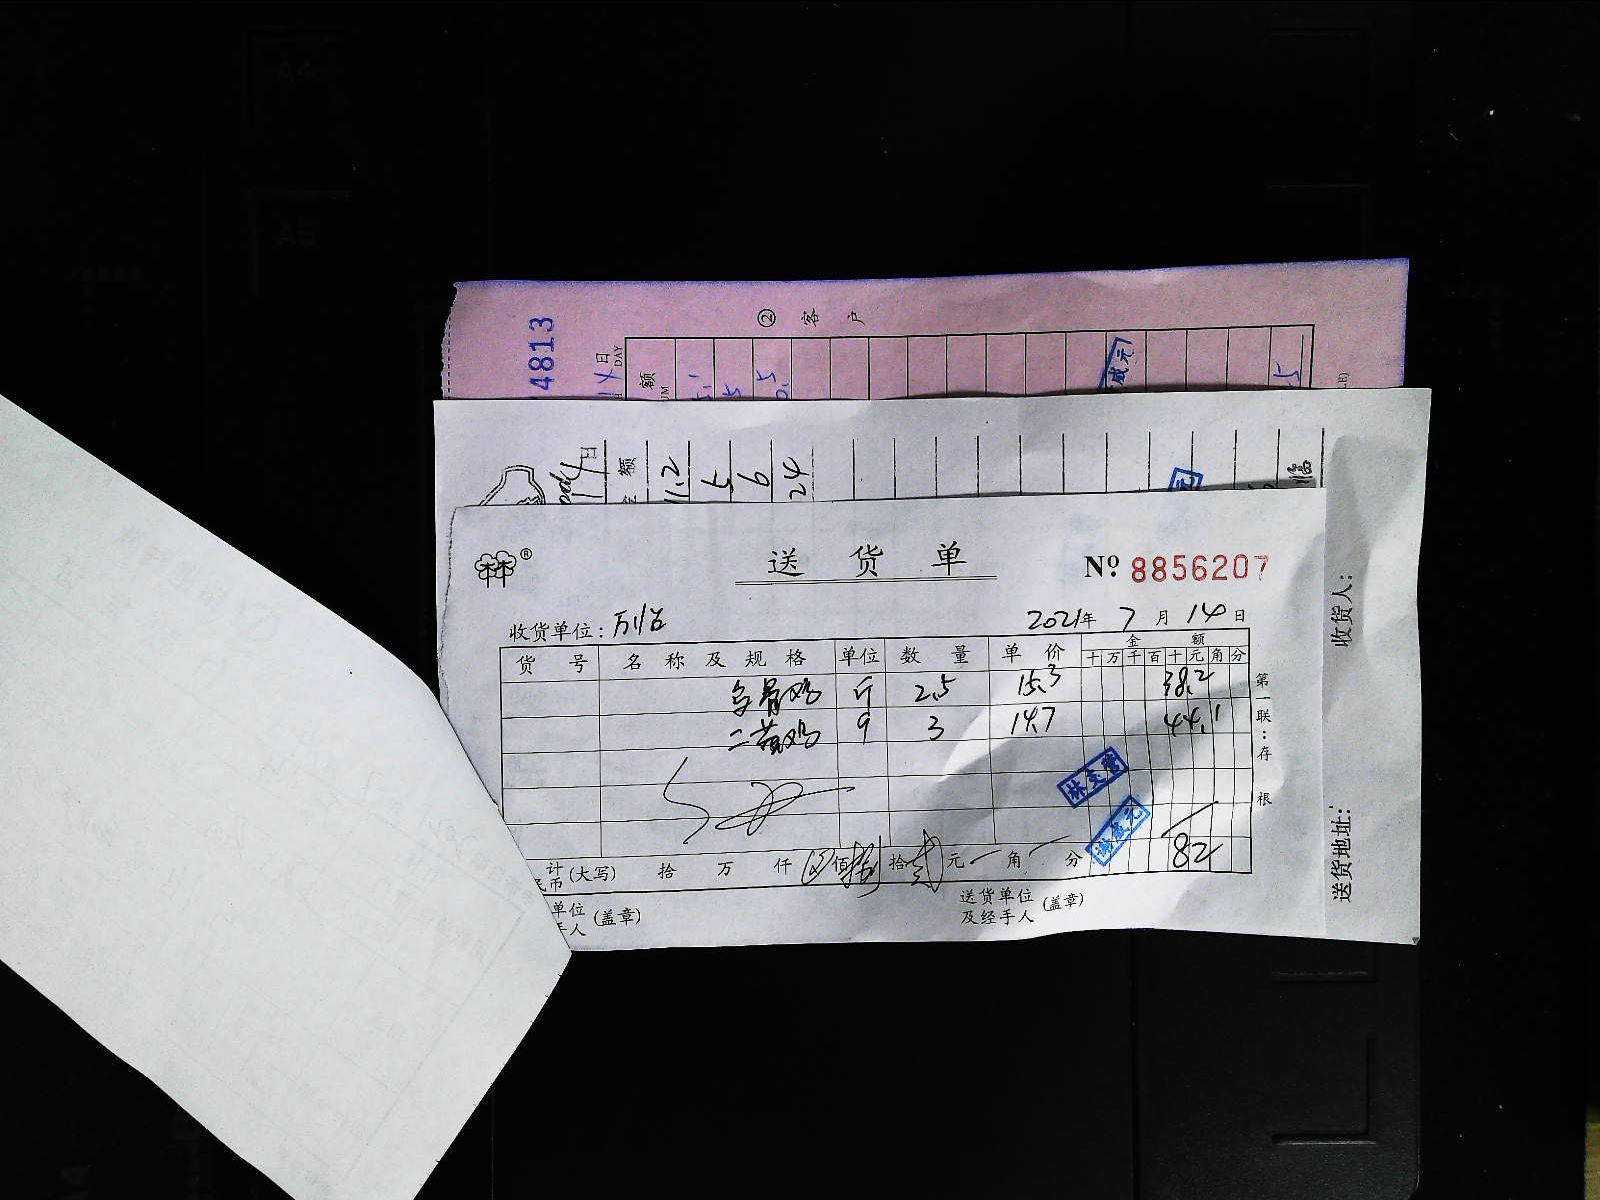 4813
② 客 户
14日
DAY
额
UM
5
5
5
日
金 额
11.2
5
6
24
®
送 货 单
Nº 8856207
收货单位：万临
2021年 7 月 14 日
货 号 名 称 及 规 格 单位 数 量 单 价 金 额
十 万 千 百 十 元 角 分
乌骨鸡 斤 2.5 15.3 38.2
二黄鸡 9 3 14.7 44.1
第一联：存根
82
计 (大写) 拾 万 仟 佰捌拾贰元 一 角 一 分
币
单位 (盖章)
手人
送货单位 (盖章)
及经手人
收货人：
送货地址：